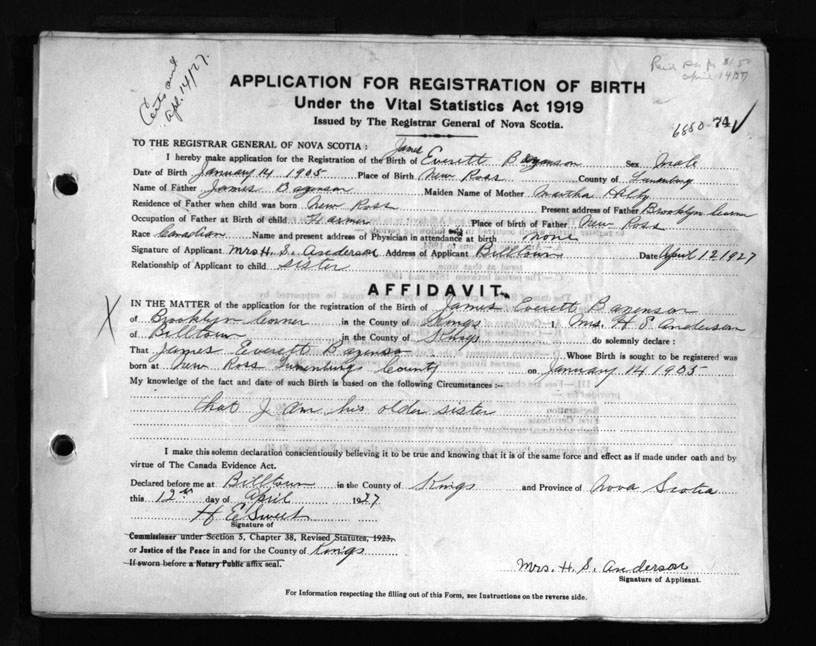 Certs and
apl. 14/27.
Paid
april 14/27
APPLICATION FOR REGISTRATION OF BIRTH
Under the Vital Statistics Act 1919
Issued by The Registrar General of Nova Scotia.
6880-74
TO THE REGISTRAR GENERAL OF NOVA SCOTIA: James
I hereby make application for the Registration of the Birth of Everett Bazenson Sex Male
Date of Birth January 14 1905 Place of Birth New Ross County of Lunenburg
Name of Father James Bazenson Maiden Name of Mother Martha
Residence of Father when child was born New Ross Present address of Father Brooklyn Corner
Occupation of Father at Birth of child Farmer Place of birth of Father New Ross
Race Canadian Name and present address of Physician in attendance at birth none
Signature of Applicant Mrs H. S. Anderson Address of Applicant Billtown Date April 12 1927
Relationship of Applicant to child sister
AFFIDAVIT
IN THE MATTER of the application for the registration of the Birth of James Everett Bazenson
X of Brooklyn Corner in the County of Kings I, Mrs. H S Anderson
of Billtown in the County of Kings do solemnly declare:
That James Everett Bazenso Whose Birth is sought to be registered was
born at New Ross Lunenburg County on January 14 1905
My knowledge of the fact and date of such Birth is based on the following Circumstances:—
that I am his older sister
I make this solemn declaration conscientiously believing it to be true and knowing that it is of the same force and effect as if made under oath and by
virtue of The Canada Evidence Act.
Declared before me at Billtown in the County of Kings and Province of Nova Scotia
this 12th day of April 1927
H E Sweet
Signature of
Commissioner under Section 5, Chapter 38, Revised Statutes, 1923,
or Justice of the Peace in and for the County of Kings
If sworn before a Notary Public affix seal.
Mrs. H. S. Anderson
Signature of Applicant.
For Information respecting the filling out of this Form, see Instructions on the reverse side.